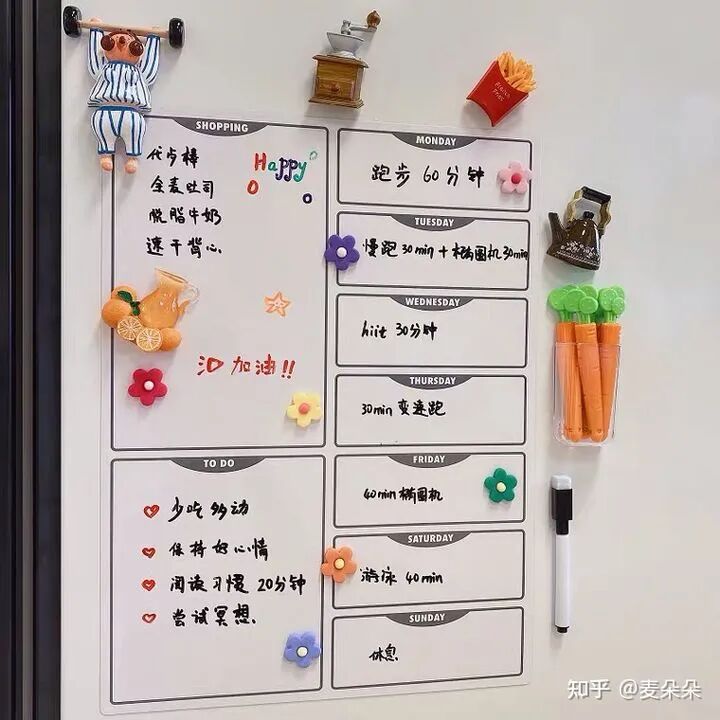 SHOPPING
代卢棒
全麦吐司
脱脂牛奶
速干背心
Happy
加油!!
TO DO
少吃多动
保持好心情
阅读习惯 20分钟
尝试冥想
MONDAY
跑步 60分钟
TUESDAY
慢跑 30min + 椭圆机 30min
WEDNESDAY
hiit 30分钟
THURSDAY
30min 变速跑
FRIDAY
40min 椭圆机
SATURDAY
游泳 40min
SUNDAY
休息
知乎 @麦朵朵